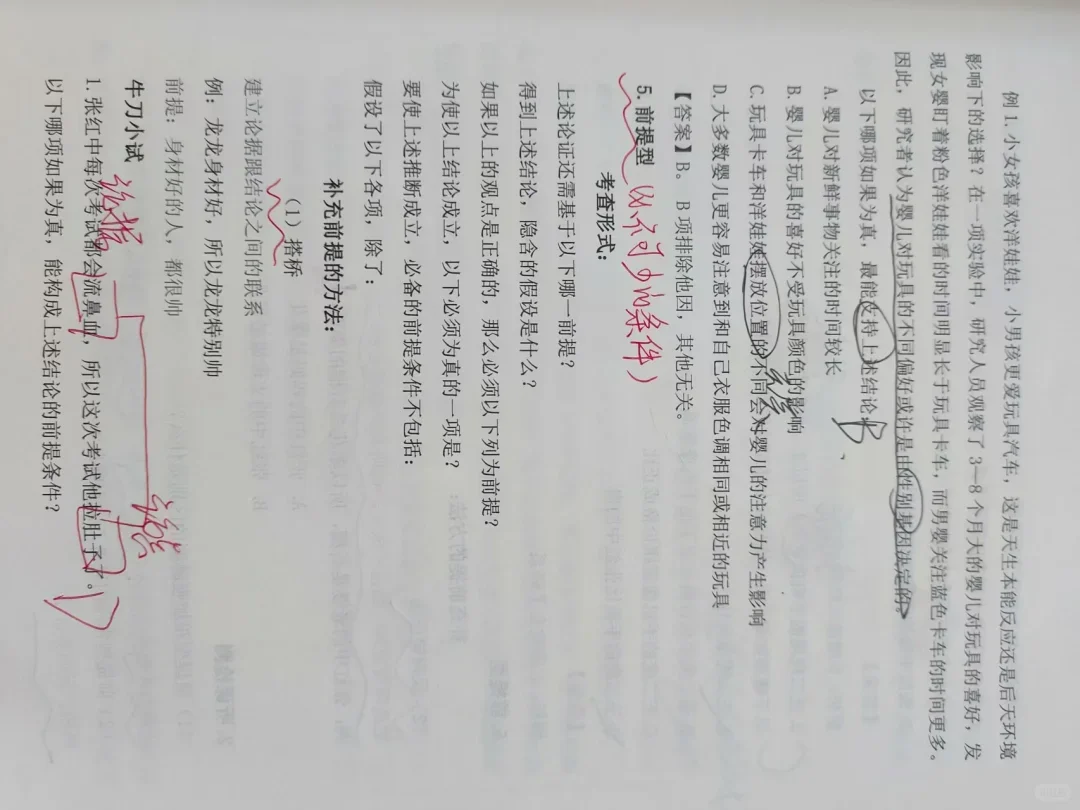 例 1. 小女孩喜欢洋娃娃，小男孩更爱玩具汽车，这是天生本能反应还是后天环境
影响下的选择？在一项实验中，研究人员观察了 3—8 个月大的婴儿对玩具的喜好，发
现女婴盯着粉色洋娃娃看的时间明显长于玩具卡车，而男婴关注蓝色卡车的时间更多。
因此，研究者认为婴儿对玩具的不同偏好或许是由性别基因决定的。
以下哪项如果为真，最能支持上述结论
A. 婴儿对新鲜事物关注的时间较长
B. 婴儿对玩具的喜好不受玩具颜色的影响
C. 玩具卡车和洋娃娃摆放位置的不同会对婴儿的注意力产生影响
D. 大多数婴儿更容易注意到和自己衣服色调相同或相近的玩具
【答案】B。B 项排除他因，其他无关。
5. 前提型 （必不可少的条件）
考查形式：
上述论证还需基于以下哪一前提？
得到上述结论，隐含的假设是什么？
如果以上的观点是正确的，那么必须以下列为前提？
为使以上结论成立，以下必须为真的一项是？
要使上述推断成立，必备的前提条件不包括：
假设了以下各项，除了：
补充前提的方法：
（1）搭桥
建立论据跟结论之间的联系
例：龙龙身材好，所以龙龙特别帅
前提：身材好的人，都很帅
牛刀小试
论据
论点
1. 张红中每次考试都会流鼻血，所以这次考试他拉肚子了。
以下哪项如果为真，能构成上述结论的前提条件？